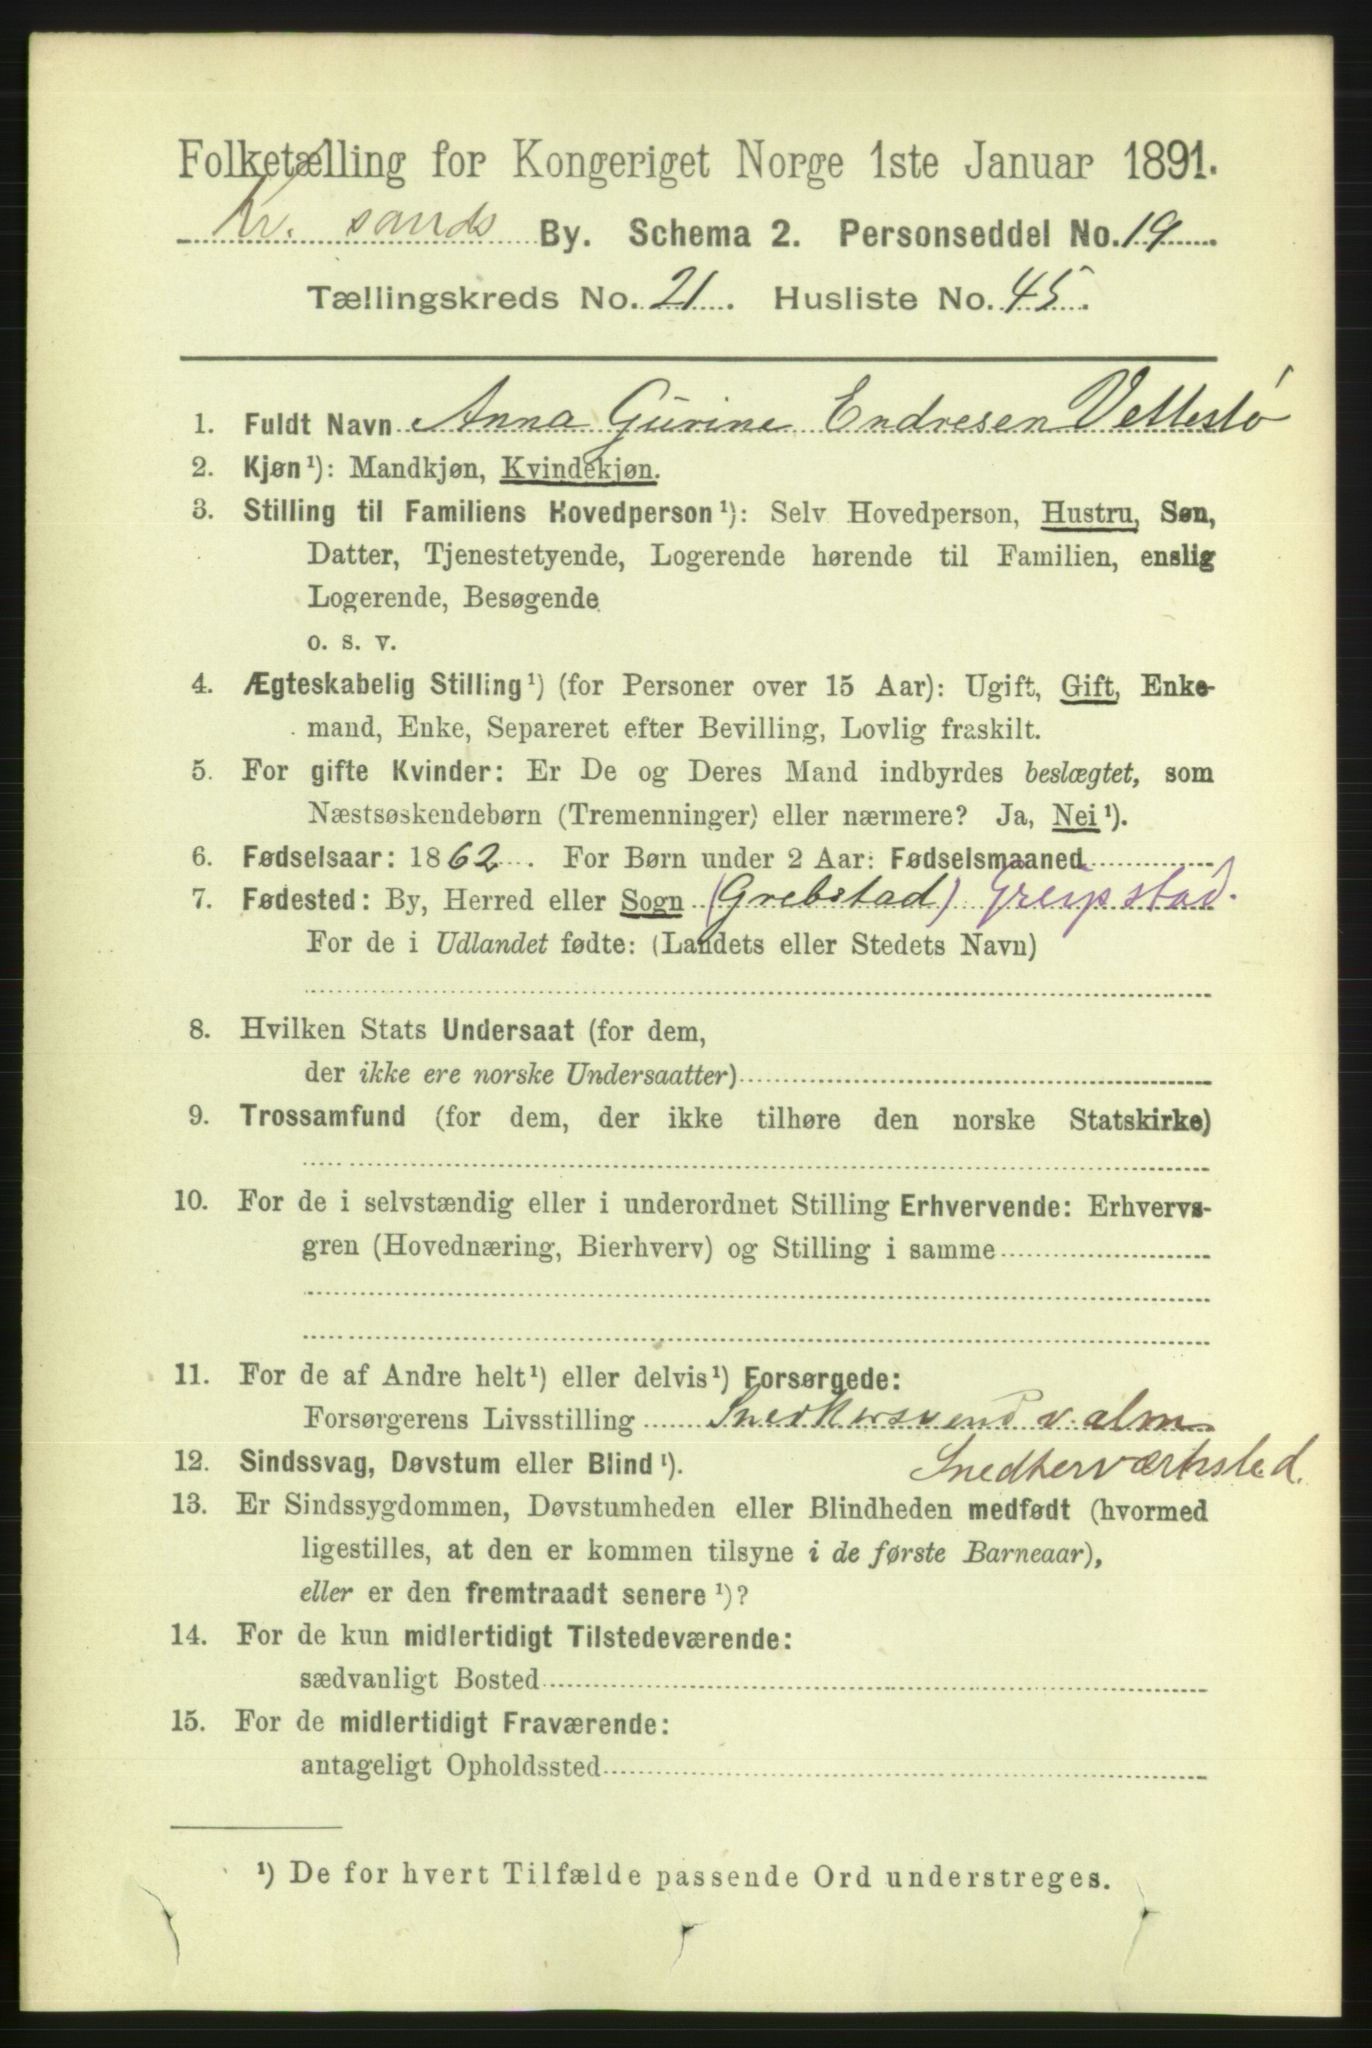 Folketælling for Kongeriget Norge 1ste Januar 1891.
Kr. sands By. Schema 2. Personseddel No. 19.
Tællingskreds No. 21. Husliste No. 45.
1. Fuldt Navn Anna Gurine Endresen Vetteslø
2. Kjøn¹): Mandkjøn, Kvindekjøn.
3. Stilling til Familiens Hovedperson¹): Selv Hovedperson, Hustru, Søn,
Datter, Tjenestetyende, Logerende hørende til Familien, enslig
Logerende, Besøgende
o. s. v.
4. Ægteskabelig Stilling¹) (for Personer over 15 Aar): Ugift, Gift, Enke-
mand, Enke, Separeret efter Bevilling, Lovlig fraskilt.
5. For gifte Kvinder: Er De og Deres Mand indbyrdes beslægtet, som
Næstsøskendebørn (Tremenninger) eller nærmere? Ja, Nei¹).
6. Fødselsaar: 1862. For Børn under 2 Aar: Fødselsmaaned
7. Fødested: By, Herred eller Sogn (Grebstad) Greipstad.
For de i Udlandet fødte: (Landets eller Stedets Navn)
8. Hvilken Stats Undersaat (for dem,
der ikke ere norske Undersaatter)
9. Trossamfund (for dem, der ikke tilhøre den norske Statskirke)
10. For de i selvstændig eller i underordnet Stilling Erhvervende: Erhvervs-
gren (Hovednæring, Bierhverv) og Stilling i samme
11. For de af Andre helt¹) eller delvis¹) Forsørgede:
Forsørgerens Livsstilling Snedkersvend v. alm.
Snedkerværksted.
12. Sindssvag, Døvstum eller Blind¹).
13. Er Sindssygdommen, Døvstumheden eller Blindheden medfødt (hvormed
ligestilles, at den er kommen tilsyne i de første Barneaar),
eller er den fremtraadt senere¹)?
14. For de kun midlertidigt Tilstedeværende:
sædvanligt Bosted
15. For de midlertidigt Fraværende:
antageligt Opholdssted
¹) De for hvert Tilfælde passende Ord understreges.